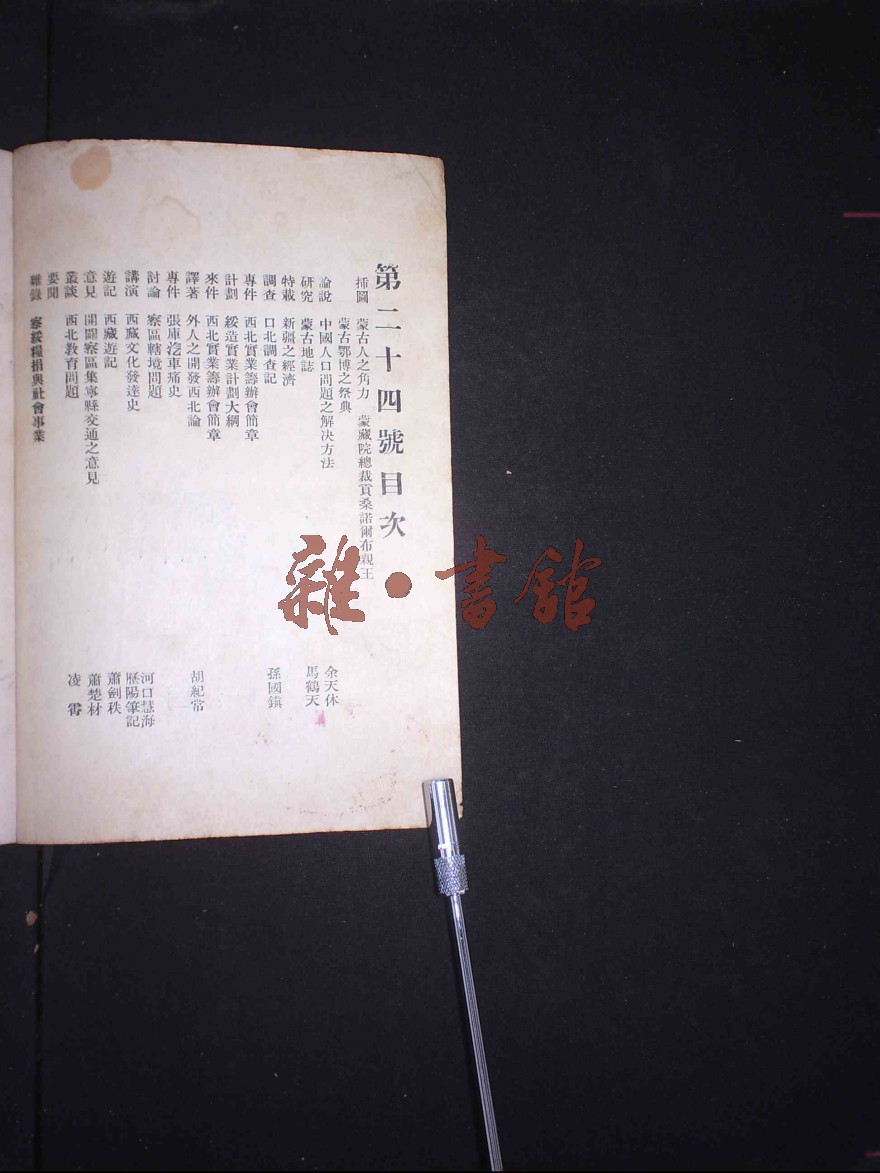 第二十四號目次
插圖 蒙古人之角力 蒙藏院總裁貢桑諾爾布親王
蒙古鄂博之祭典
論說 中國人口問題之解决方法 余天休
研究 蒙古地誌 馬鶴天
特載 新疆之經濟
調查 口北調查記 孫國鎮
專件 西北實業籌辦會簡章
計劃 綏造實業計劃大綱
來件 西北實業籌辦會簡章
譯著 外人之開發西北論 胡紀常
專件 張庫汽車痛史
討論 察區轄境問題
講演 西藏文化發達史 河口慧海 歷陽筆記
遊記 西藏遊記 蕭劍秩
意見 開闢察區集寧縣交通之意見 蕭楚材
叢談 西北教育問題 凌霄
要聞
雜錄 察綏糧捐與社會事業
雜·書館